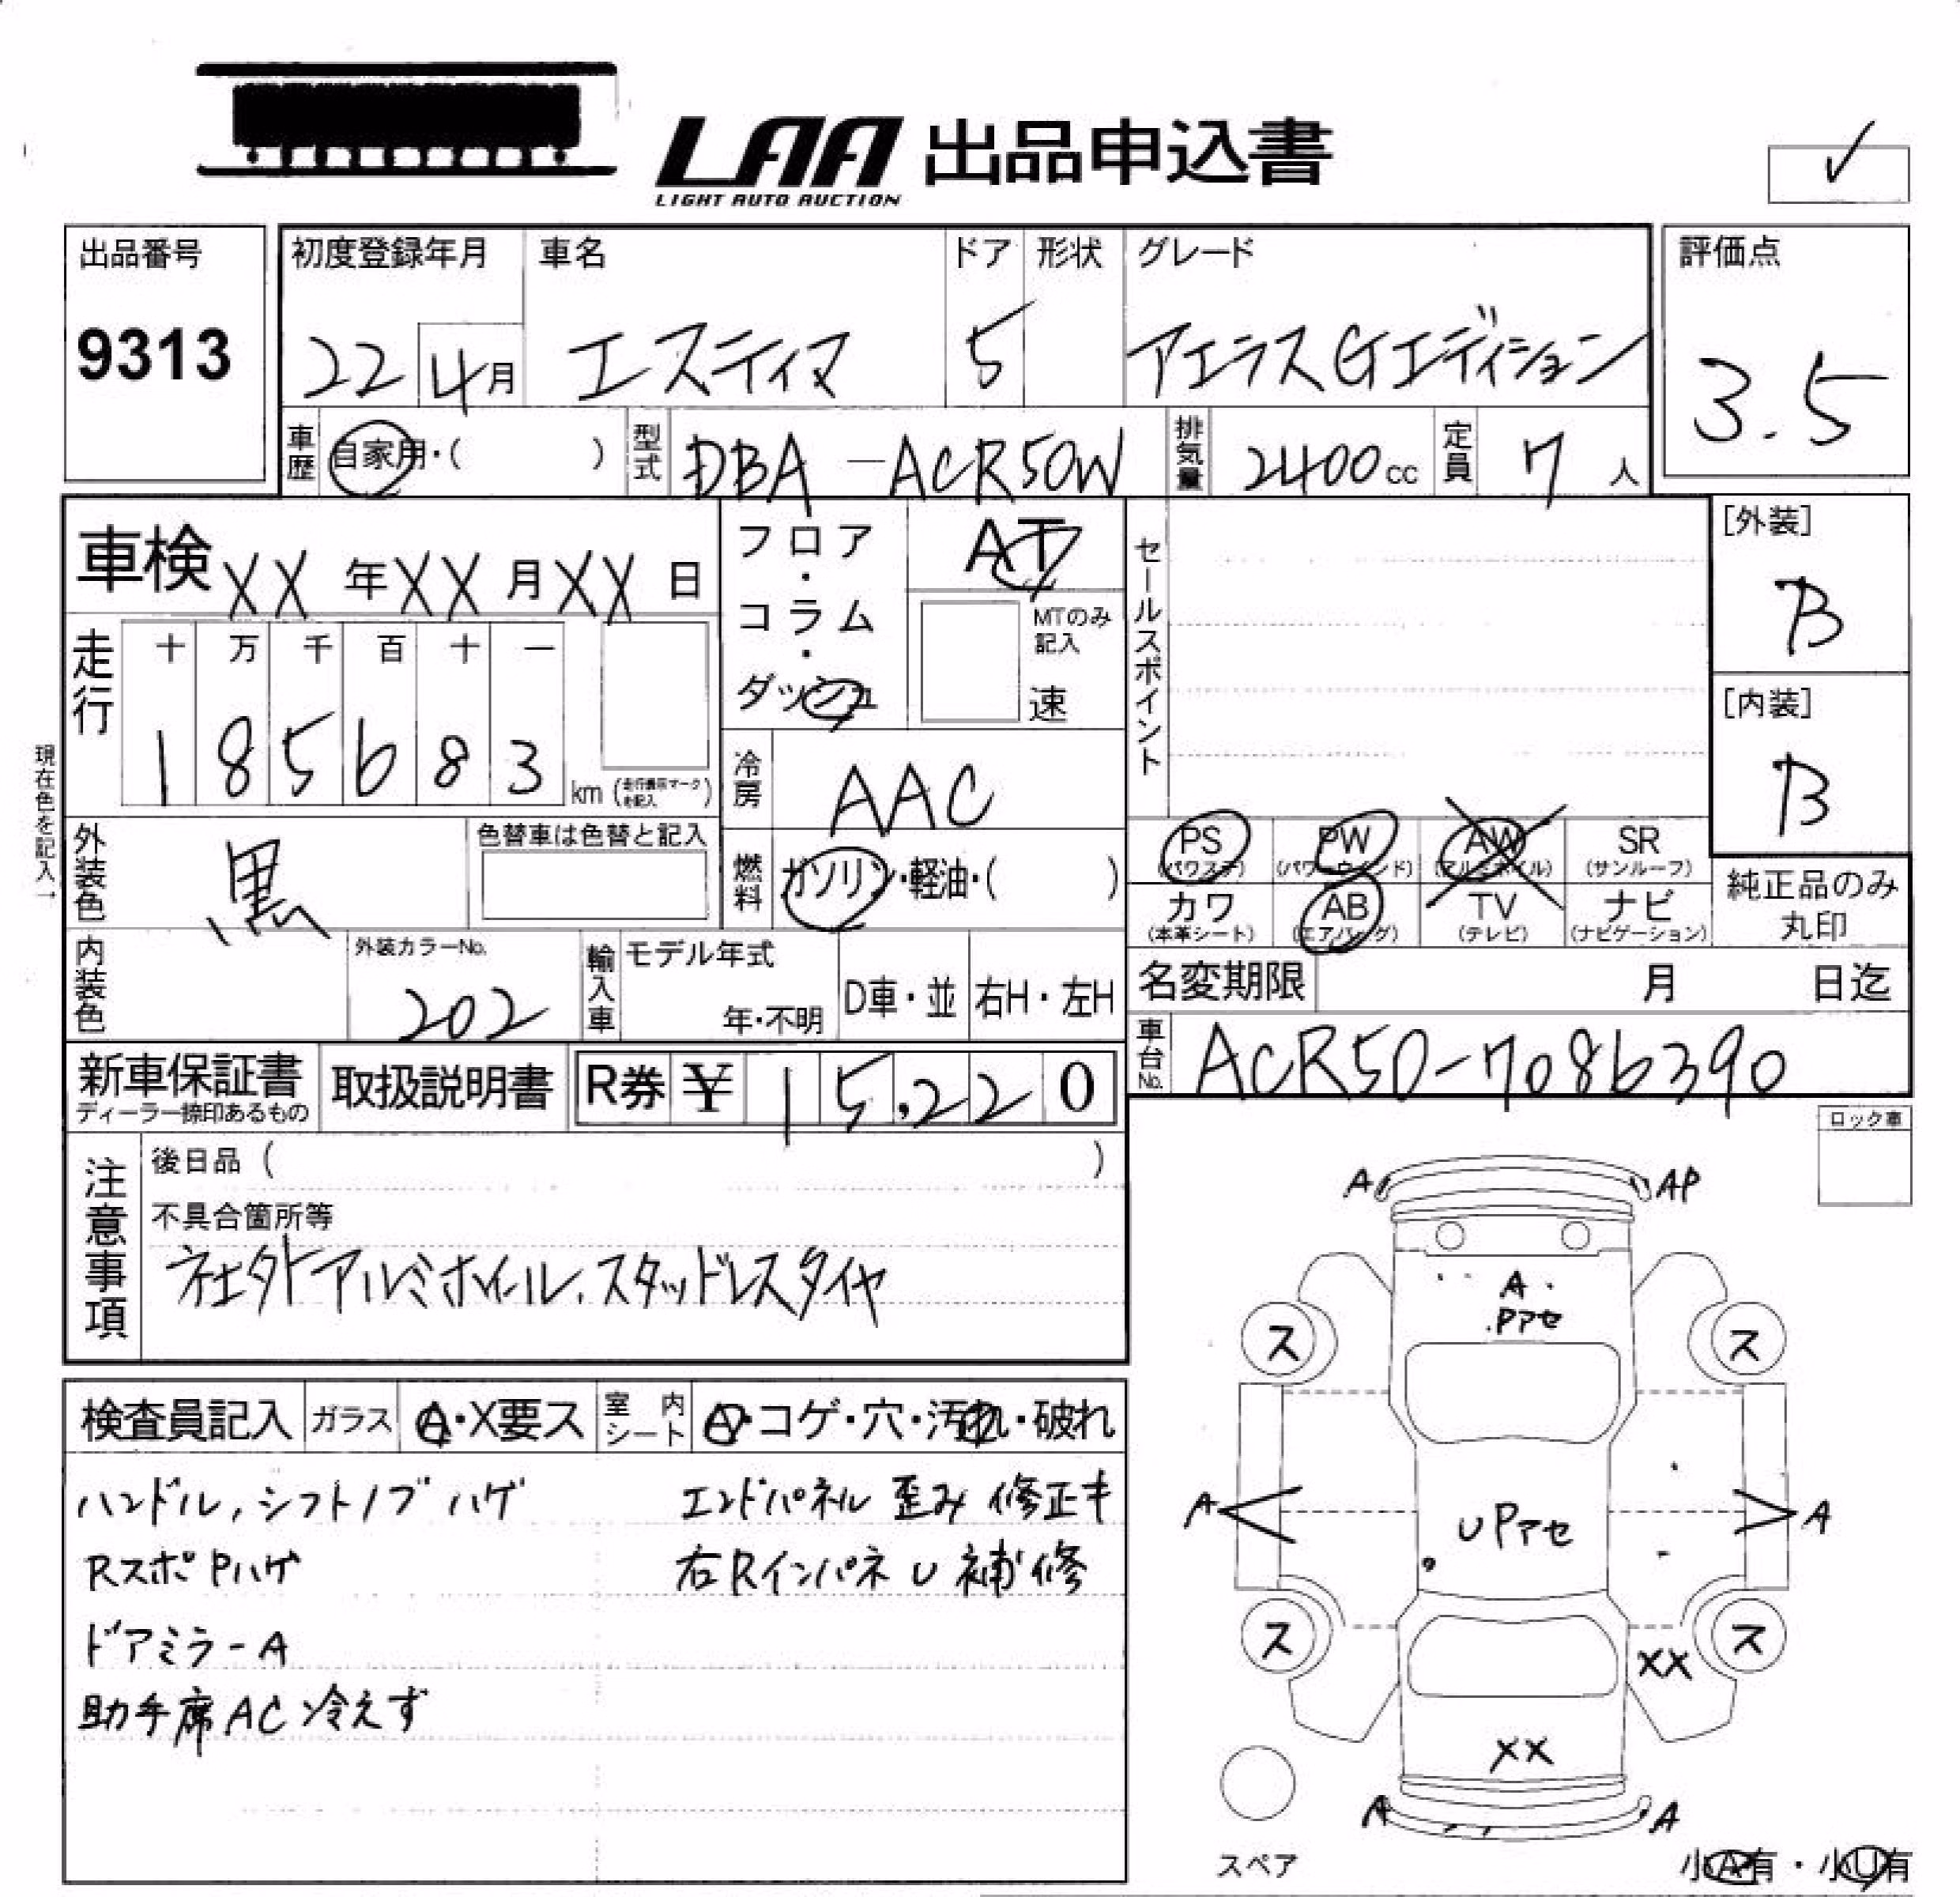 LAA 出品申込書
LIGHT AUTO AUCTION
✓
出品番号
9313
初度登録年月
22 4月
車名
エスティマ
ドア
5
形状
グレード
アエラスGエディション
評価点
3.5
車歴 自家用・( )
型式 DBA-ACR50W
排気量 2400cc
定員 7人
車検 XX年XX月XX日
フロア・コラム・ダッシュ
AT
MTのみ記入
速
セールスポイント
[外装]
B
[内装]
B
走行
十 万 千 百 十 一
1 8 5 6 8 3 km (走行表示マークを記入)
現在色を記入→
冷房 AAC
外装色 黒
色替車は色替と記入
燃料 ガソリン・軽油・( )
PS (パワステ)
PW (パワーウインド)
AW (アルミホイル)
SR (サンルーフ)
カワ (本革シート)
AB (エアバッグ)
TV (テレビ)
ナビ (ナビゲーション)
純正品のみ
丸印
内装色
外装カラーNo.
202
輸入車
モデル年式
年・不明
D車・並
右H・左H
名変期限 月 日迄
車台No. ACR50-7086390
新車保証書
ディーラー捺印あるもの
取扱説明書
R券 ¥ 15,220
ロック車
注意事項
後日品 ( )
不具合箇所等
社外アルミホイル、スタッドレスタイヤ
検査員記入
ガラス A・X要ス
室内シート A・コゲ・穴・汚れ・破れ
ハンドル,シフトノブ ハゲ
Rスポ Pハゲ
ドアミラーA
助手席AC冷えず
エンドパネル 歪み 修正キ
右Rインパネ U 補修
A AP
A
Pアセ
ス ス
A A
UPアセ
ス ス
XX
XX
A A
スペア
小A有・小U有